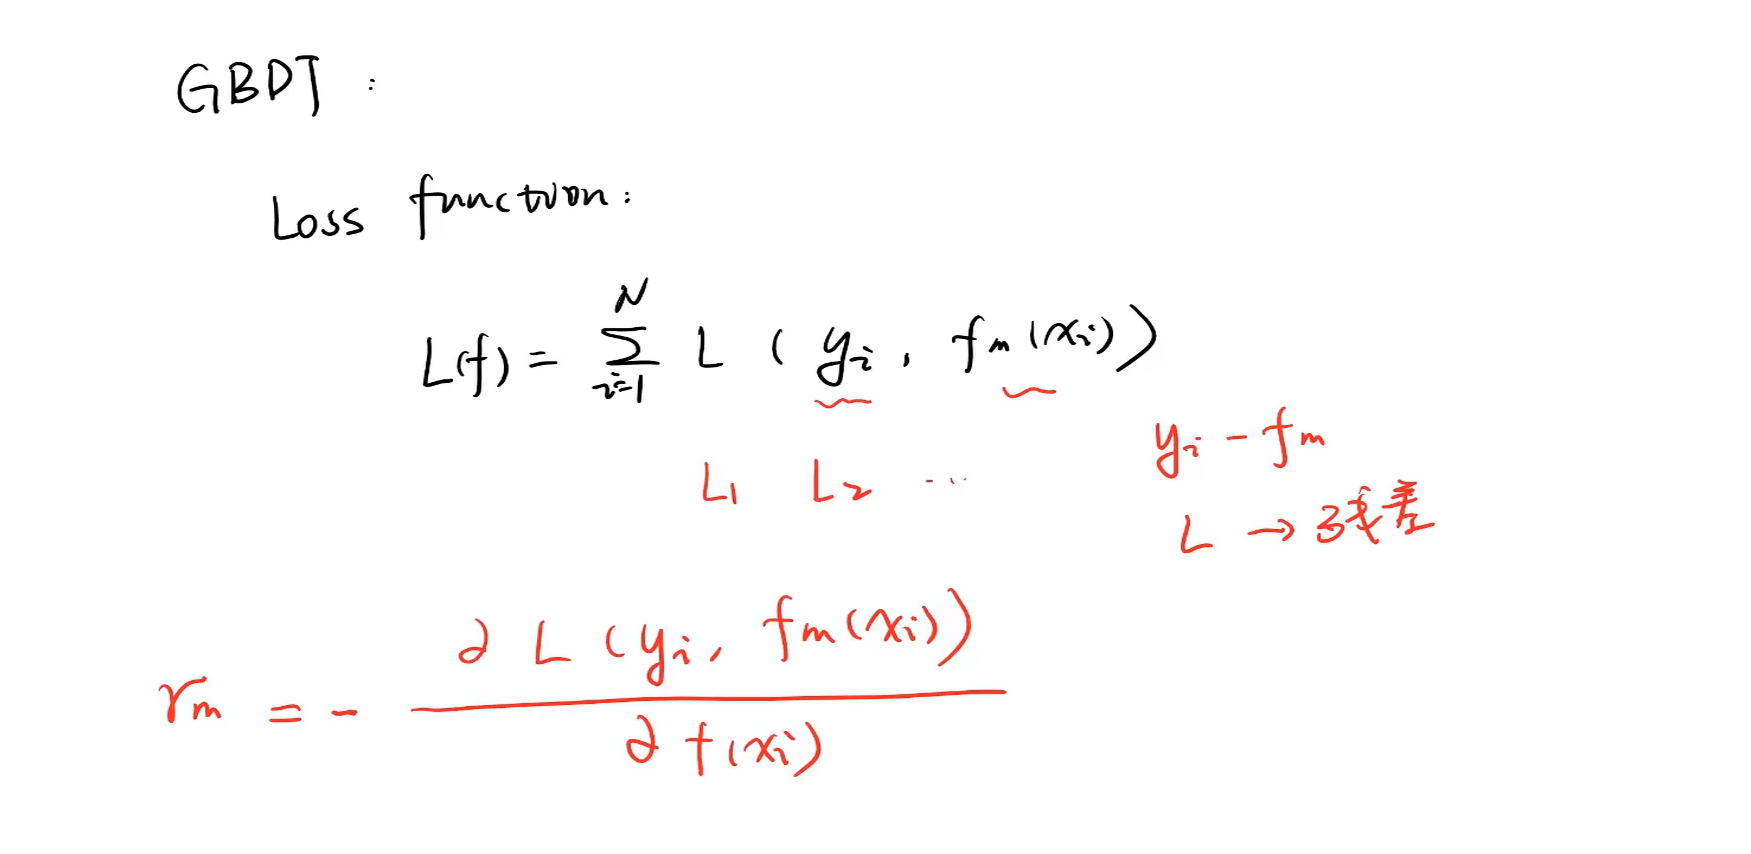 GBDT :
Loss function:
L(f) = \sum_{i=1}^{N} L ( y_i , f_m(x_i) )
y_i - f_m
L_1 L_2 ...
L → 残差
r_m = - \frac{∂ L (y_i, f_m(x_i))}{∂ f(x_i)}